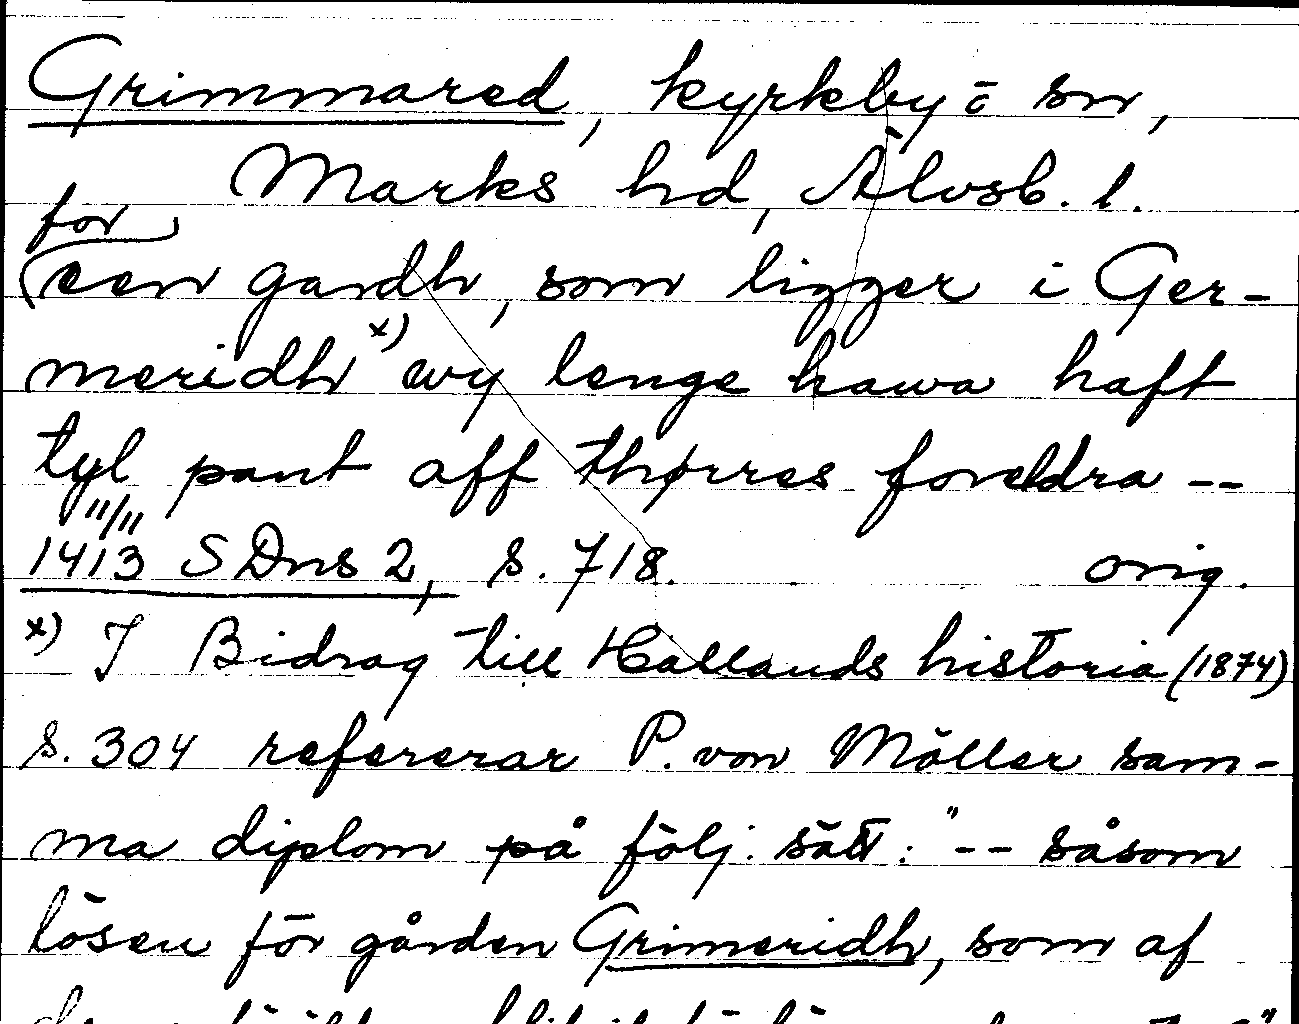 Grimmared, kyrkby ō sn,
Marks hd, Älvsb. l.
for
een gardh, som ligger i Ger-
meridh x) wy lenge hawa haft
tyl pant aff thørres foreldra --
11/11
1413 SDns 2, s. 718. orig.
x) I Bidrag till Hallands historia (1874)
s. 304 refererar P. von Möller sam-
ma diplom på följ. sätt: "-- såsom
lösen för gården Grimeridh, som af